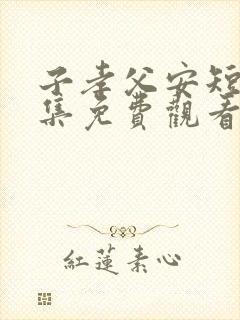 子孝父安短
集免費觀看
紅蓮素心